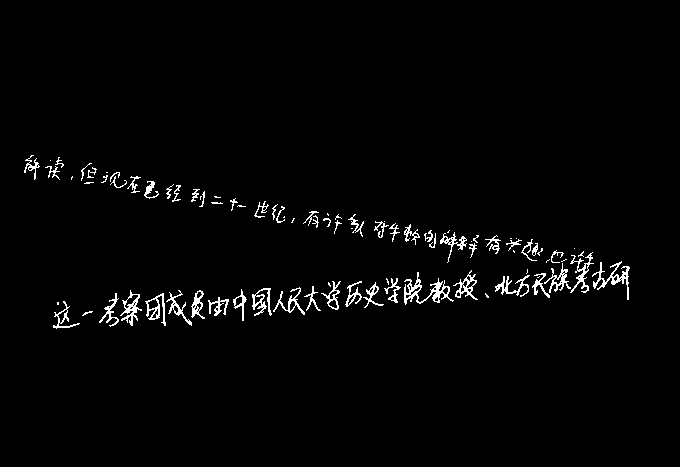 解读,但现在已经到二十一世纪,有许多对年龄的解释有兴趣也许
这一考察团成员由中国人民大学历史学院教授、北方民族考古研